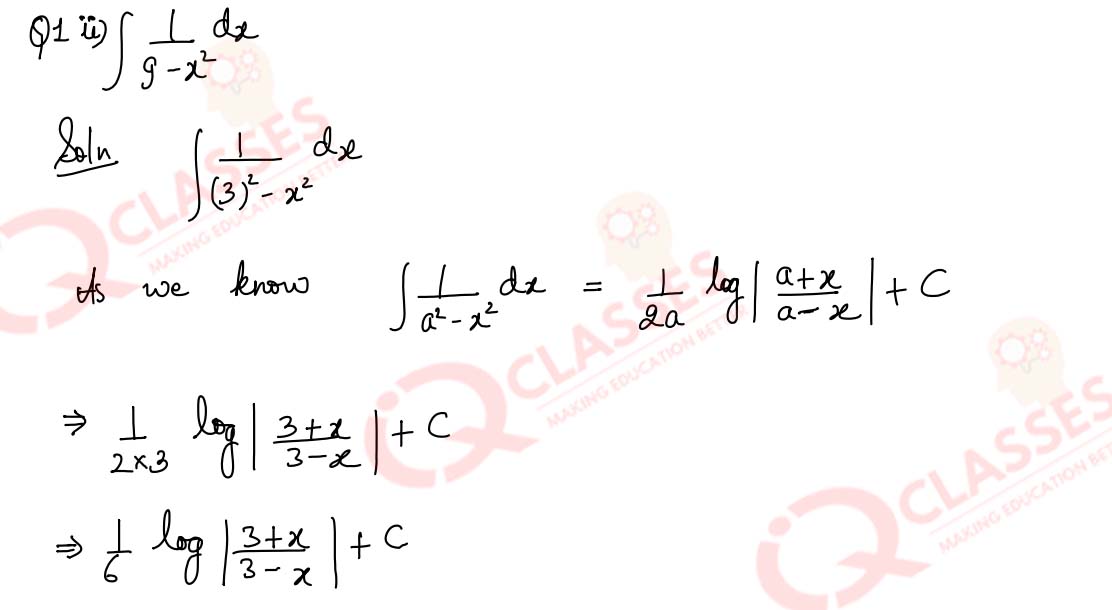 Q1 ii) ∫ 1/(9 - x²) dx
Soln ∫ 1/((3)² - x²) dx
As we know ∫ 1/(a² - x²) dx = 1/(2a) log |(a+x)/(a-x)| + C
⇒ 1/(2×3) log |(3+x)/(3-x)| + C
⇒ 1/6 log |(3+x)/(3-x)| + C
QCLASSES
MAKING EDUCATION BETT
QCLASSES
MAKING EDUCATION BETT
QCLASSES
MAKING EDUCATION BETT